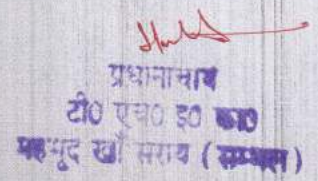 प्रधानाचार्य
टी० एच० इ० का०
महमूद खाँ सराय (सम्भल)